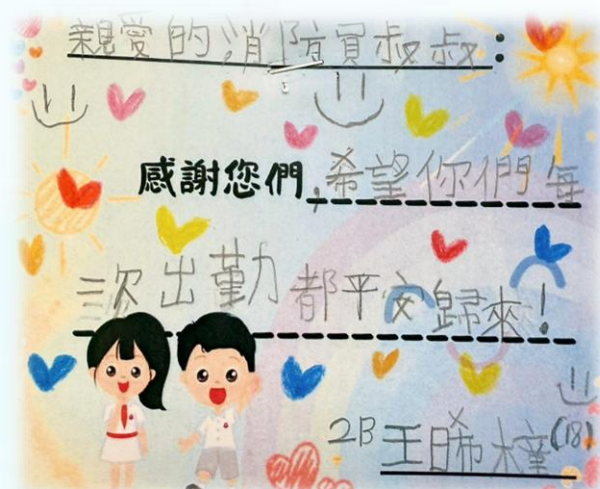 親愛的消防員叔叔：
感謝您們,希望你們每
三次出勤都平安歸來！
2B 王日晞橦(18)